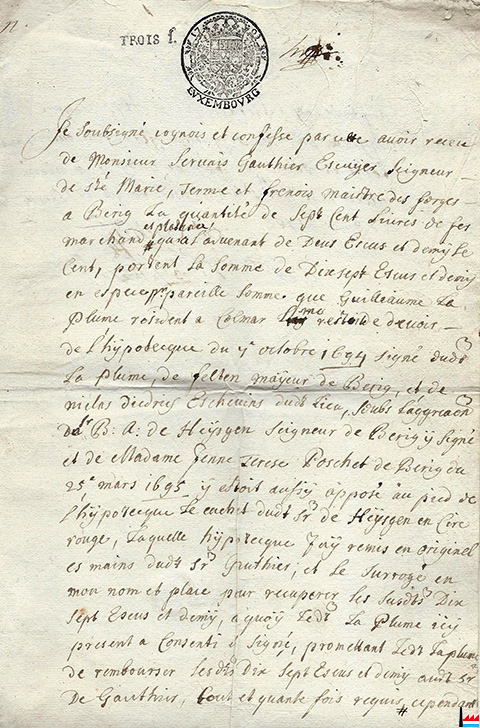 TROIS f.
17 01
LVXEMBOVRG
Je soubsigné cognois et confesse par cette avoir receu
de Monsieur Servais Gauthier Escuijer Seigneur
de ste Marie, Serme et frenois maistre des forges
a Berig La quantité de sept Cent Livres de fer
et platinée
marchand qu'a L'avenant de Deus Escus et demÿ le
Cent, portent La somme de Dixsept Escus et demÿ
en espece, pr pareille somme que Guilleaume La
Plume resident a Colmar me reste de devoir
de L'hÿpotecque du 7e octobre 1694 signé dudt
La Plume, de felten maÿeur de Berig, et de
niclas diedrÿ Eschevins dudt Lieu, soubs L'aggreaon
du Sr B: A: de Heÿsgen Seigneur de Berig ÿ signé
et de Madame Jenne terese Poschet de Berig du
25e mars 1695 ÿ estoit aussÿ apposé au pied de
L'hÿpotecque Le cachet dudt Sr de Heÿsgen en Cire
rouge, Laquelle hÿpotecque J'aÿ remis en originel
es mains dudt Sr Gauthier, et Le surrogé en
mon nom et place pour recuperer les susdts Dix
sept Escus et demÿ, a quoÿ Ledt La Plume icÿ
present a Consenti et signé, promettant Ledt La plume
de rembourser lesdts Dix sept Escus et demÿ audt Sr
De Gauthier, tout et quante fois requis, cependant